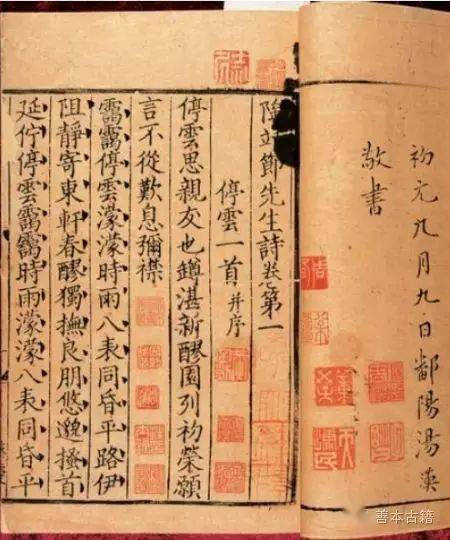 初元九月九日鄱陽湯漢
敬書
陶靖節先生詩卷第一
停雲一首 并序
停雲思親友也罇湛新醪園列初榮願
言不從歎息彌襟
靄靄停雲濛濛時雨八表同昏平路伊
阻靜寄東軒春醪獨撫良朋悠邈搔首
延佇停雲靄靄時雨濛濛八表同昏平
善本古籍